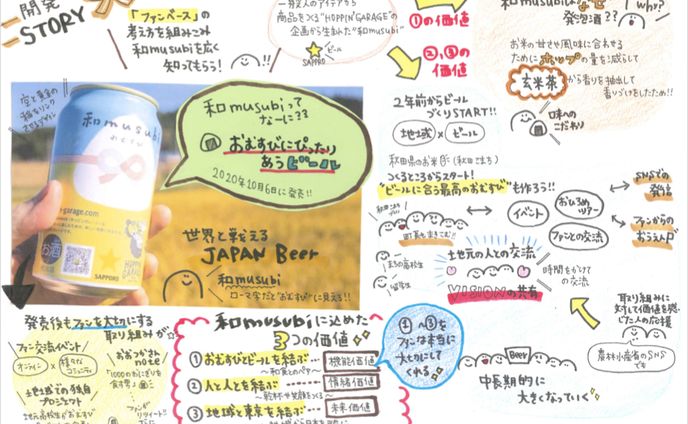 開発
STORY
「ファンベース」の
考え方を組みこみ
和musubiを広く
知ってもらう!
商品をつくる"HOPPIN'GARAGE"の
企画から生まれた"和musubi"
SAPPORO
ビール
①の価値
②,③の
価値
発泡酒??
Why?
お米の甘さや風味に合わせる
ためにホップの量を減らして
玄米茶
から香りを抽出して
香りづけをしたため!!
味への
こだわり
和musubi
beer
garage.com
お酒
SAPPORO
和musubiって
なーに??
おむすびにぴったり
あうビール
2020年10月6日に発売!!
世界と戦える
JAPAN Beer
和musubi
ローマ字だと"おむすび"に見える!!
2年前からビール
づくりSTART!!
地域×ビール
秋田県のお米作(秋田こまち)
つくるところからスタート!
"ビールに合う最高のおむすび"も作ろう!!
町長もまきこむ!
まちの高校生
留学生
イベント
おひろめ
ツアー
ファンとの交流
SNSでの
発信
ファンからの
おうえんが
土地元の人との交流
時間をかけて
の交流
VISIONの共有
取り組みに
対して価値を感
じた人の応援
農林水産省のSNS
です
Beer
中長期的に
大きくなっていく
発売後もファンを大切にする
取り組みが☆
ファン交流イベント
オンライン×様々な
コミュニティ
地土或での独自
プロジェクト
地元高校生がおむすび
おおつかさん
note
「1000のおにぎりを
ファンが
リツイート
和musubiに込めた
3つの価値
①おむすびとビールを結ぶ…機能価値
〜和食とのペア〜
②人と人とを結ぶ…情緒価値
③地域と東京を結ぶ…未来価値
①〜③を
ファンは本当に
大切にして
くれる